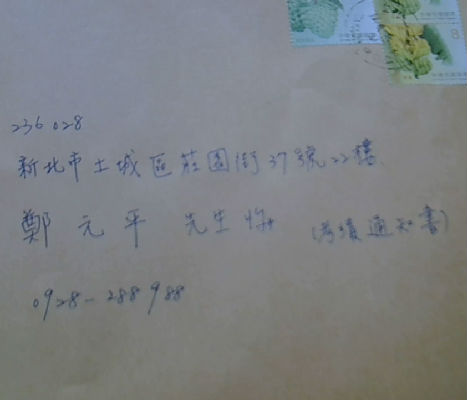 8
236028
新北市土城區莊園街37號22樓
鄭元平 先生 (考績通知書)
0928-288988